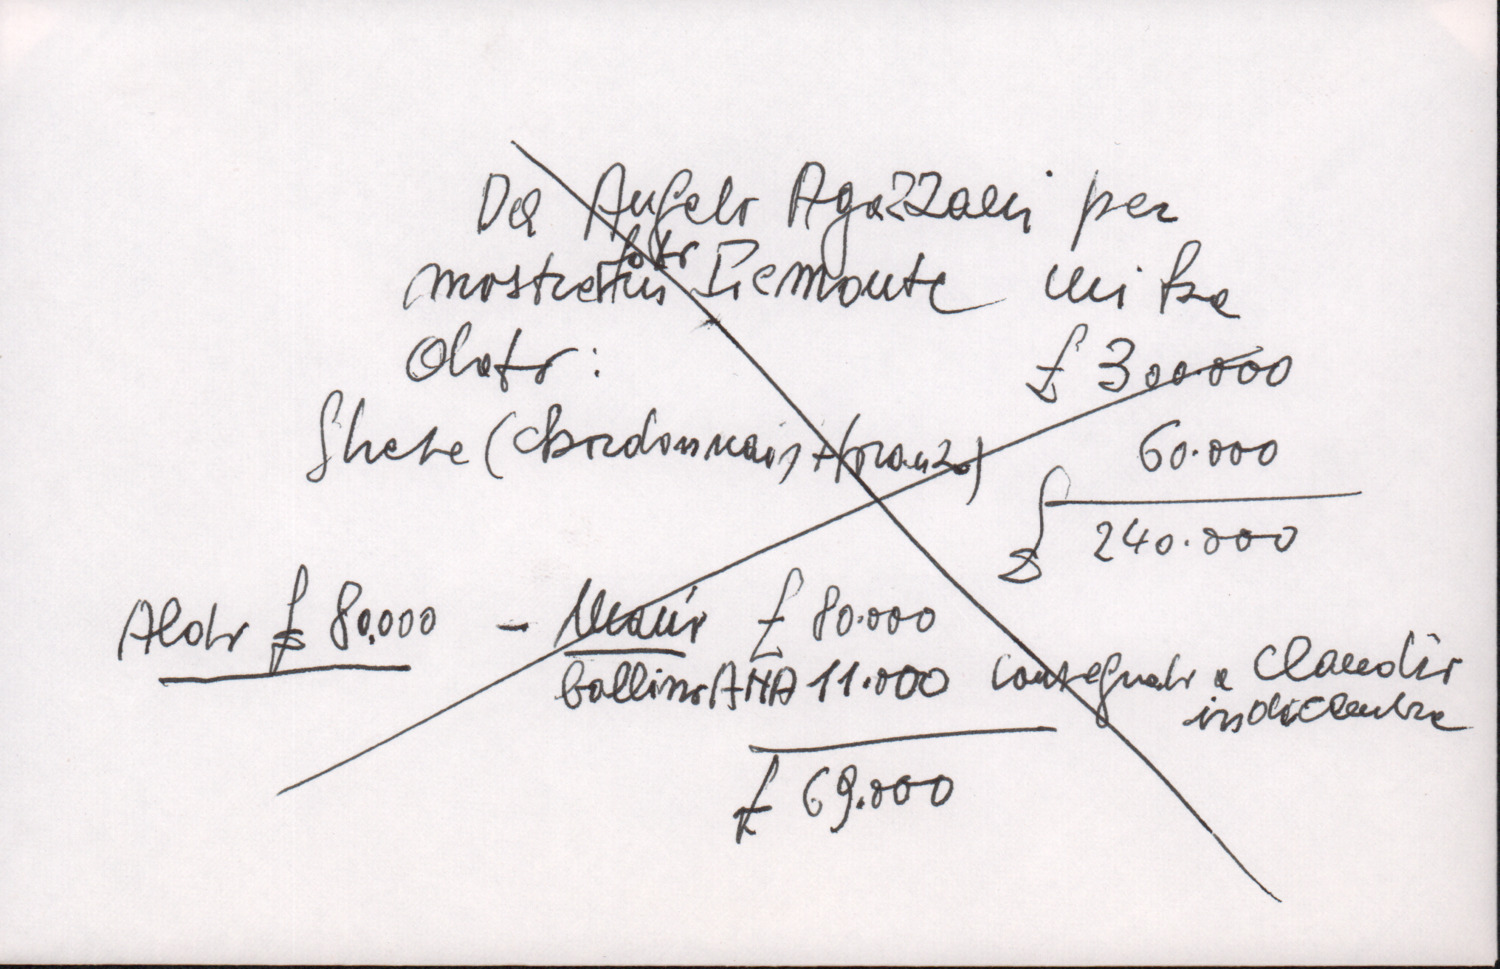 Da Angelo Agazzani per
foto
mostre in Piemonte mi ha
dato: £ 300.000
Spese (Chardonnais + pranzo) 60.000
240.000
Aldo £ 80.000 - Mario £ 80.000
bollino ANA 11.000 consegnato a Claudio
in dicembre
£ 69.000